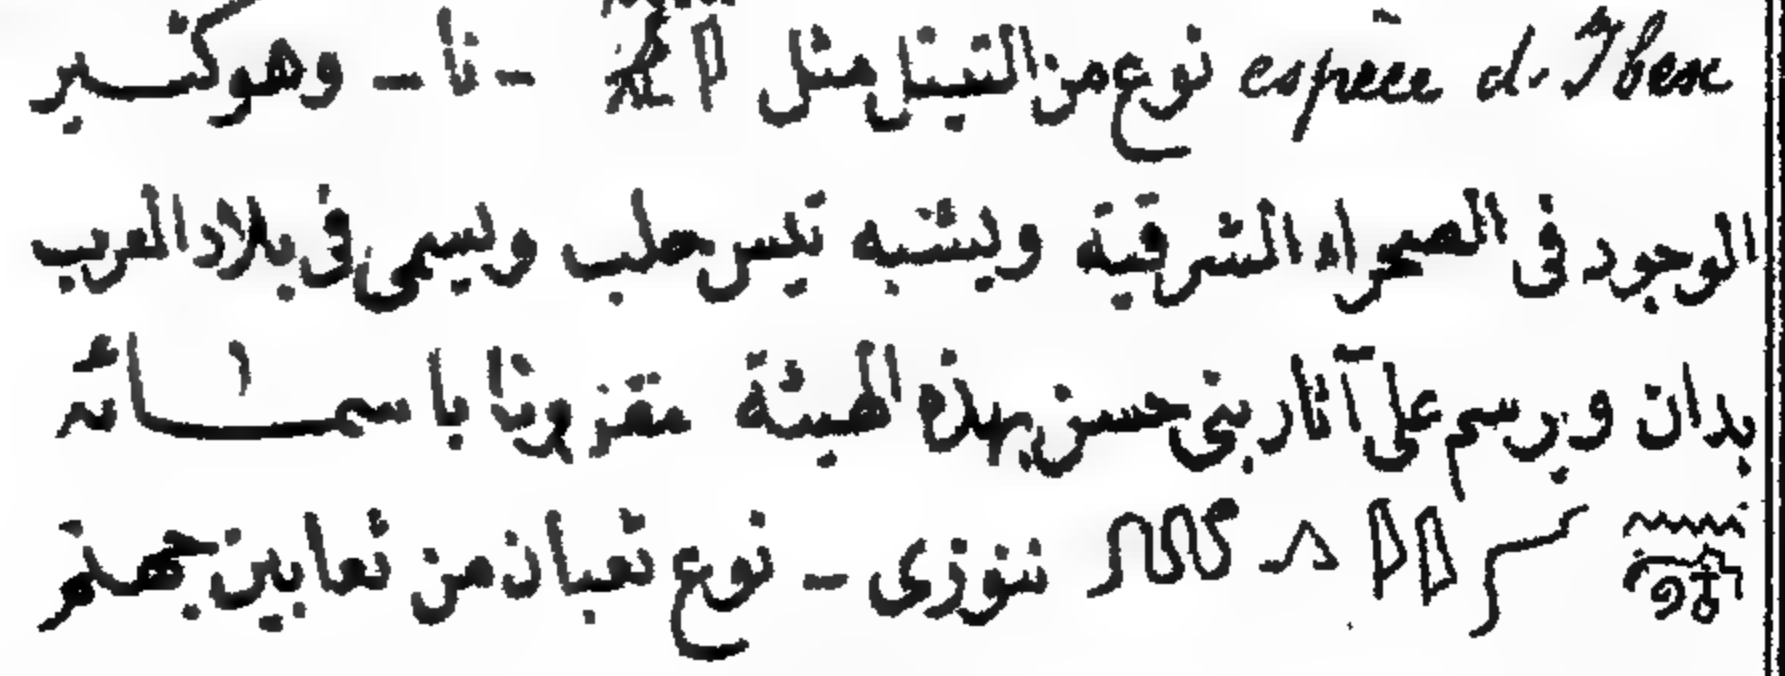 espèce d'Ibex نوع من التيتل مثل - نا - وهو كثير
الوجود فى الصحراء الشرقية ويشبه تيس حلب ويسمى فى بلاد العرب
بدان ويرسم على آثار بنى حسن بهذه الهيئة مقرونا باسمائه
ننوزى - نوع ثعبان من ثعابين جهنم